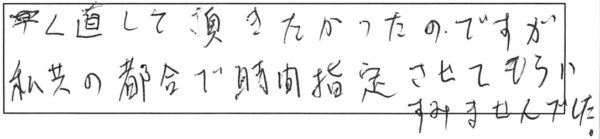 早く直して頂きたかったのですが
私共の都合で時間指定させてもらい
すみませんでした。